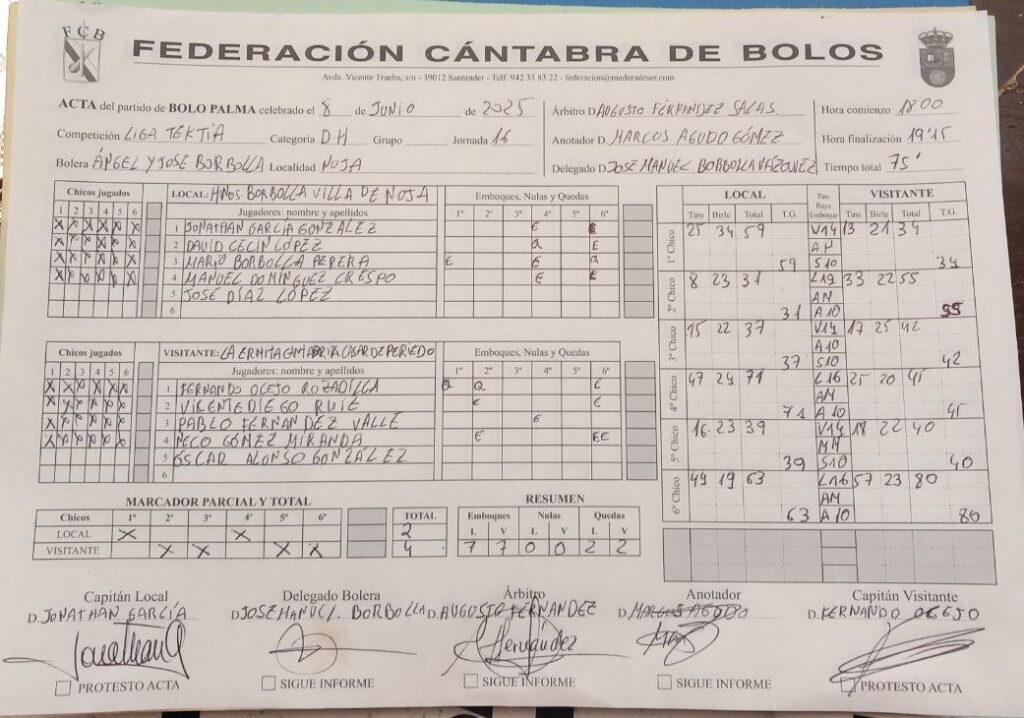 FCB
FEDERACIÓN CÁNTABRA DE BOLOS
Avda. Vicente Trueba, s/n - 39012 Santander - Telf. 942 33 83 22 - federacion@maderadeser.com
ACTA del partido de BOLO PALMA celebrado el 8 de JUNIO de 2025
Competición LIGA TEKTIA Categoría DH Grupo Jornada 16
Bolera ÁNGEL Y JOSÉ BORBOLLA Localidad NOJA
Árbitro D. AUGUSTO FERNÁNDEZ SALAS
Anotador D. MARCOS AGUDO GÓMEZ
Delegado D. JOSÉ MANUEL BORBOLLA VÁZQUEZ
Hora comienzo 18'00
Hora finalización 19'15
Tiempo total 75'
Chicos jugados LOCAL: HNOS BORBOLLA VILLA DE NOJA Emboques, Nulas y Quedas
1 2 3 4 5 6 Jugadores: nombre y apellidos 1º 2º 3º 4º 5º 6º
X X X X X X 1 JONATHAN GARCÍA GONZÁLEZ E E
X X X X X X 2 DAVID CECÍN LÓPEZ Q E
X X X X X X 3 MARIO BORBOLLA PERERA E E Q
X X X X X X 4 MANUEL DOMÍNGUEZ CRESPO E E
5 JOSÉ DÍAZ LÓPEZ
6
Chicos jugados VISITANTE: LA ERMITA CASAR DE PERIEDO Emboques, Nulas y Quedas
1 2 3 4 5 6 Jugadores: nombre y apellidos 1º 2º 3º 4º 5º 6º
X X X X X X 1 FERNANDO OCEJO ROZADILLA Q Q E
X X X X X X 2 VICENTE DIEGO RUIZ E E
X X X X X X 3 PABLO FERNÁNDEZ VALLE E
X X X X X X 4 NECO GÓMEZ MIRANDA E EE
5 ÓSCAR ALONSO GONZÁLEZ
6
LOCAL Tiro Raya Emboque VISITANTE
Tiro Birle Total T.G. Tiro Birle Total T.G.
1º Chico 25 34 59 V14 13 21 34
AP
59 S10 34
2º Chico 8 23 31 L19 33 22 55
AN
31 A10 55
3º Chico 15 22 37 V14 17 25 42
A10
37 S10 42
4º Chico 47 24 71 L16 25 20 45
AM
71 A10 45
5º Chico 16 23 39 V14 18 22 40
MM
39 S10 40
6º Chico 44 19 63 L16 57 23 80
AM
63 A10 80
MARCADOR PARCIAL Y TOTAL
Chicos 1º 2º 3º 4º 5º 6º TOTAL
LOCAL X X 2
VISITANTE X X X X 4
RESUMEN
Emboques Nulas Quedas
L V L V L V
7 7 0 0 2 2
Capitán Local
D. JONATHAN GARCÍA
PROTESTO ACTA
Delegado Bolera
D. JOSÉ MANUEL BORBOLLA
SIGUE INFORME
Árbitro
D. AUGUSTO FERNÁNDEZ
SIGUE INFORME
Anotador
D. MARCOS AGUDO
SIGUE INFORME
Capitán Visitante
D. FERNANDO OCEJO
PROTESTO ACTA